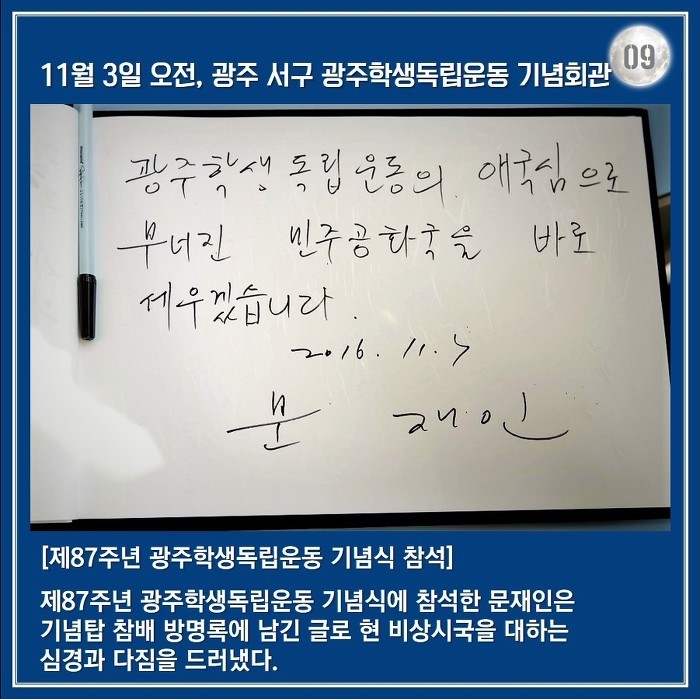 11월 3일 오전, 광주 서구 광주학생독립운동 기념회관
09
광주학생독립운동의 애국심으로
무너진 민주공화국을 바로
세우겠습니다.
2016. 11. 3
문 재 인
[제87주년 광주학생독립운동 기념식 참석]
제87주년 광주학생독립운동 기념식에 참석한 문재인은
기념탑 참배 방명록에 남긴 글로 현 비상시국을 대하는
심경과 다짐을 드러냈다.